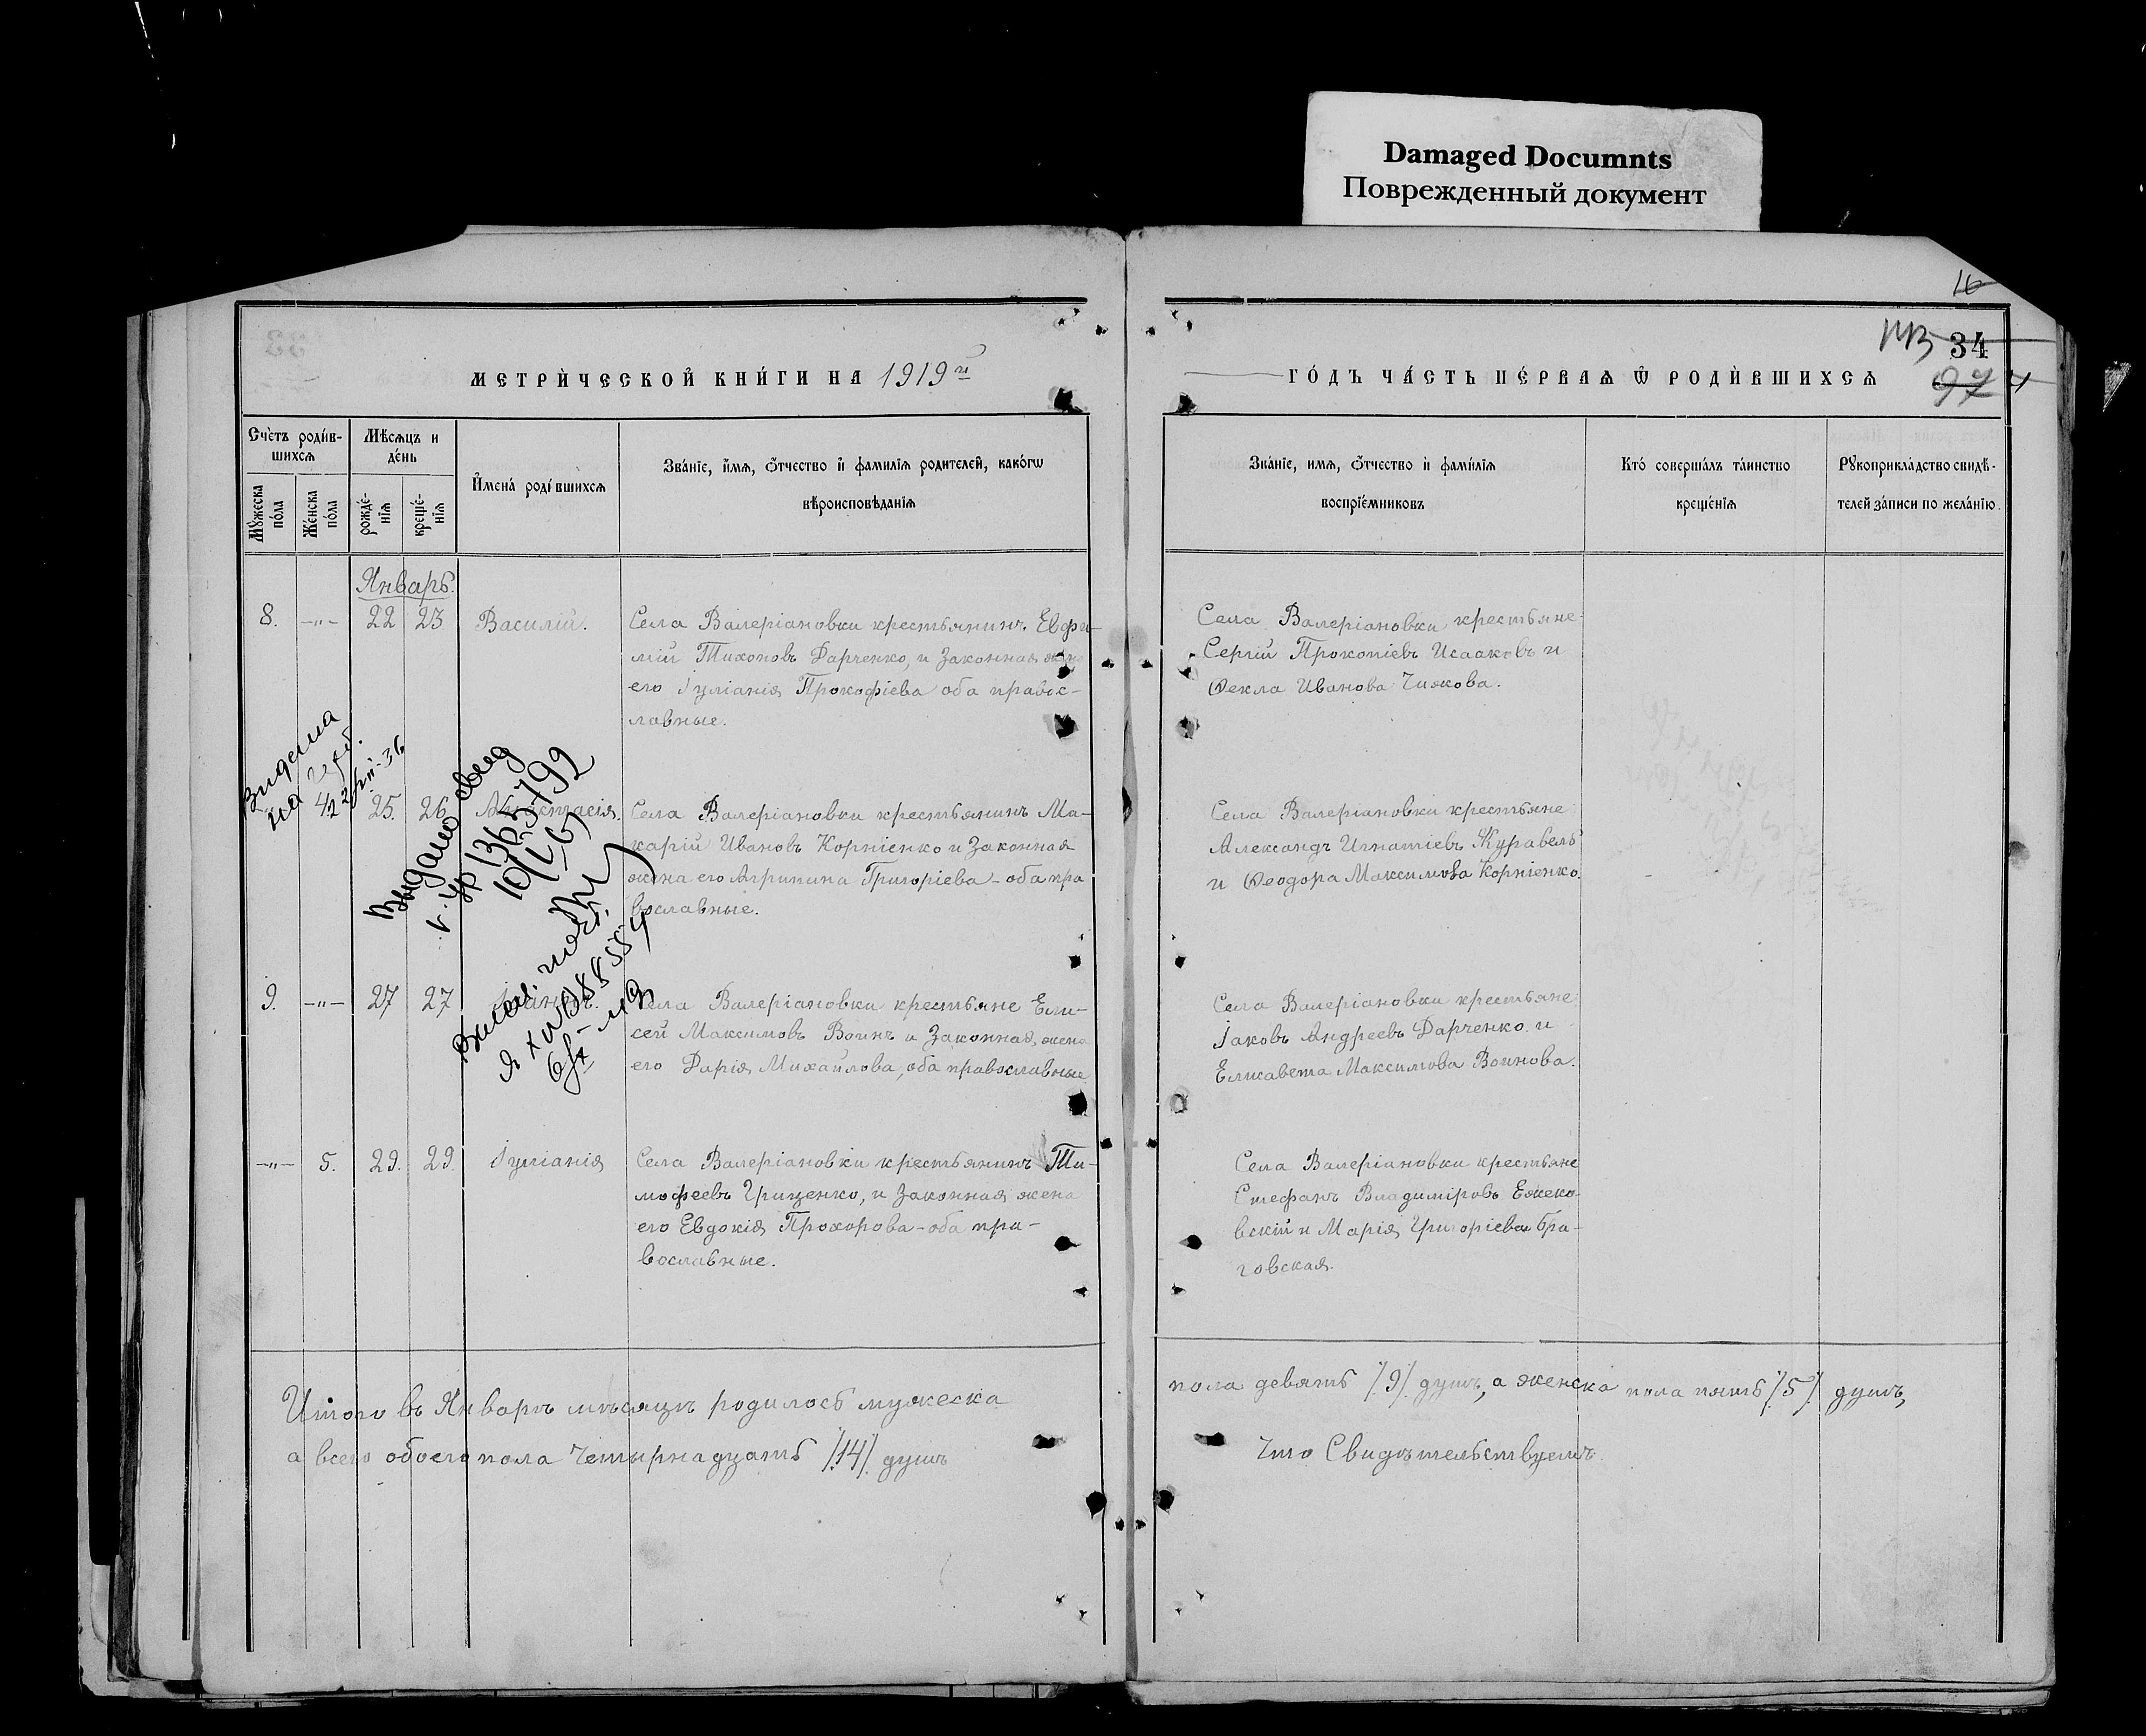 Damaged Documnts
Поврежденный документ
16
34
МЕТРИ́ЧЕСКОЙ КНИ́ГИ НА 1919 й
ГО́ДЪ ЧА́СТЬ ПЕ́РВАѦ Ѿ РОДИ́ВШИХСѦ
97
Сче́тъ роди́в-
шихсѧ
Мѣ́сѧцъ и
де́нь
И҆мена́ роди́вшихсѧ
Зва́нїе, и҆́мѧ, ѻ҆́тчество и҆ фами́лїѧ роди́телей, како́гѡ
вѣроисповѣ́данїѧ
Мꙋ́жеска
по́ла
Же́нска
по́ла
рожде́-
нїѧ
креще́-
нїѧ
Зва́нїе, имѧ, ѻ҆́тчество и҆ фами́лїѧ
воспрїе́мниковъ
Кто́ соверша́лъ та́инство
креще́нїѧ
Рꙋкоприкла́дство свидѣ́-
телей за́писи по жела́нїю.
Январь.
8. —"— 22 23 Василій.
Села Валеріановки крестьянинъ Евфи-
мій Тихоновъ Дарченко, и законная жен
его Іуліанія Прокофіева оба правос-
лавные.
Села Валеріановки крестьяне
Сергій Прокопіевъ Исааковъ и
Ѳекла Иванова Чижкова.
4. 25. 26 Анастасія.
Села Валеріановки крестьянинъ Ма-
карій Ивановъ Корніенко и законная
жена его Агрипина Григоріева - оба пра
вославные.
Села Валеріановки крестьяне
Александъ Игнатіевъ Журавель
и Ѳеодора Максимова Корніенко.
Выдано свид
10/V
9. —"— 27 27 Іаковъ.
Села Валеріановки крестьяне Ели-
сей Максимовъ Воинъ и законная жена
его Дарія Михайлова, оба православные
Села Валеріановки крестьяне
Іаковъ Андреевъ Дарченко. и
Елисавета Максимова Воинова.
—"— 5. 29. 29. Іуліанія
Села Валеріановки крестьянинъ Ти-
мофеевъ Гриценко, и законная жена
его Евдокія Прохорова - оба пра-
вославные.
Села Валеріановки крестьяне
Стефанъ Владиміровъ Ежеко-
вскій и Марія Григоріева Бра-
говская.
Итого въ Январѣ мѣсяцѣ родилось мужеска
пола девять /9/ душъ, а женска пола пять /5/ душъ,
а всего обоего пола четырнадцать /14/ душъ
Что Свидѣтельствуемъ